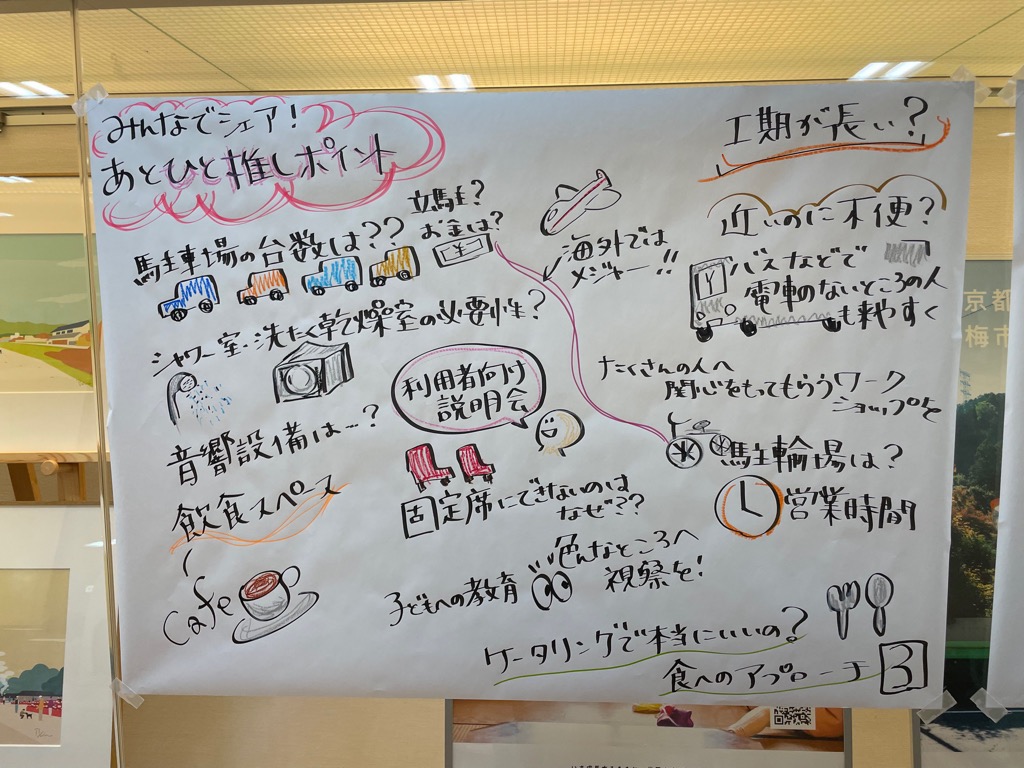 みんなでシェア!
あとひと推しポイント
工期が長い?
駐車場の台数は??
立駐?
お金は?
海外では
メジャー!!
近いのに不便?
バスなどで
電車のないところの人
も来やすく
シャワー室・洗たく乾燥室の必要性?
利用者向け
説明会
たくさんの人へ
関心をもってもらうワーク
ショップを
音響設備は…?
駐輪場は?
飲食スペース
cafe
固定席にできないのは
なぜ??
営業時間
子どもへの教育
色んなところへ
視察を!
ケータリングで本当にいいの?
食へのアプローチ
3
京都
梅市